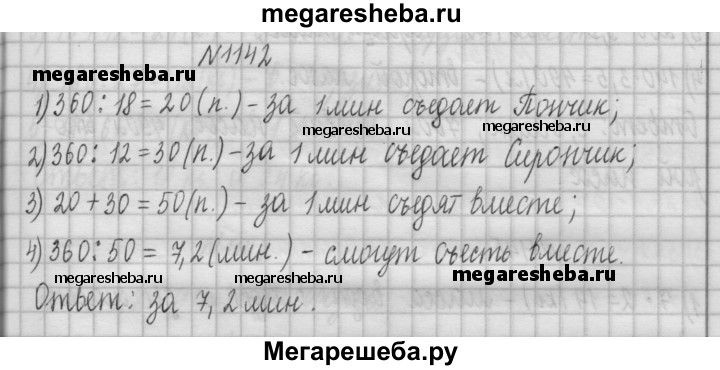 megaresheba.ru
N1142
megaresheba.ru
1) 360 : 18 = 20 (п.) – за 1 мин съедает Пончик;
megaresheba.ru megaresheba.ru
2) 360 : 12 = 30 (п.) – за 1 мин съедает Сирончик;
3) 20 + 30 = 50 (п.) – за 1 мин съедят вместе;
4) 360 : 50 = 7,2 (мин.) – смогут съесть вместе.
megaresheba.ru megaresheba.ru
Ответ: за 7,2 мин.
Мегарешеба.ру